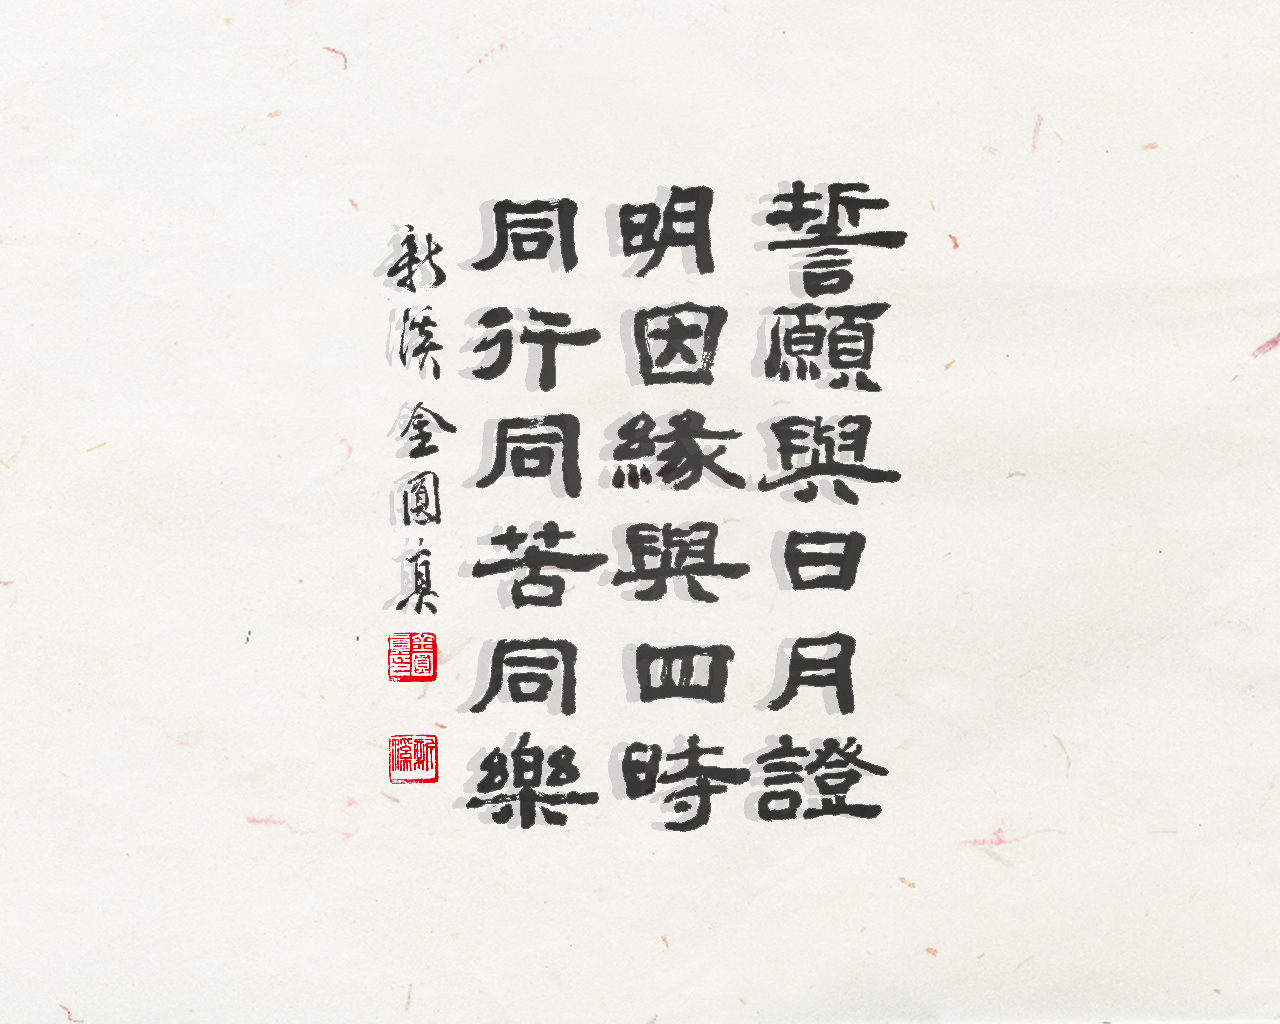 誓願與日月證
明因緣與四時
同行同苦同樂
新溪金圓真